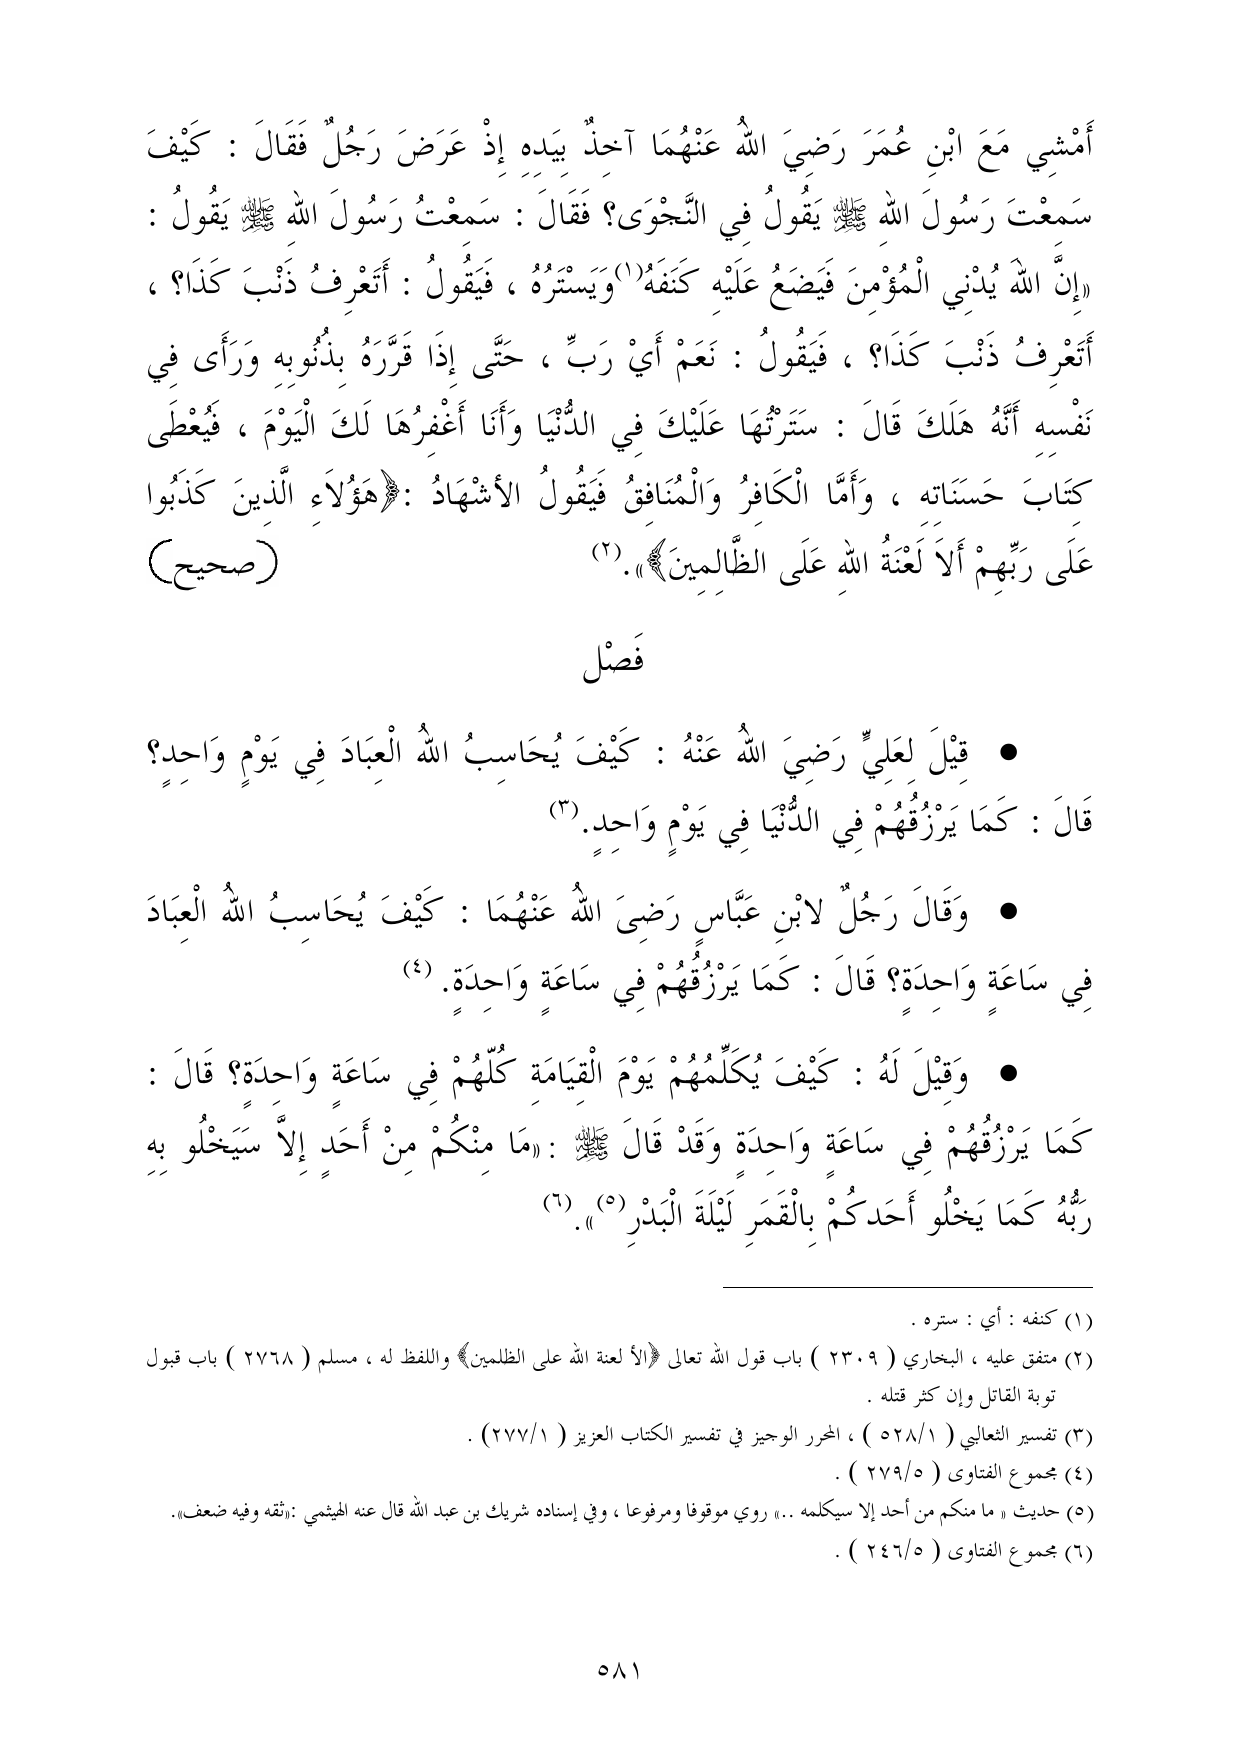 أَمْشِي مَعَ ابْنِ عُمَرَ رَضِيَ اللهُ عَنْهُمَا آخِذٌ بِيَدِهِ إِذْ عَرَضَ رَجُلٌ فَقَالَ : كَيْفَ
سَمِعْتَ رَسُولَ اللهِ ﷺ يَقُولُ فِي النَّجْوَى؟ فَقَالَ : سَمِعْتُ رَسُولَ اللهِ ﷺ يَقُولُ :
«إِنَّ اللهَ يُدْنِي الْمُؤْمِنَ فَيَضَعُ عَلَيْهِ كَنَفَهُ(١)وَيَسْتَرُهُ ، فَيَقُولُ : أَتَعْرِفُ ذَنْبَ كَذَا؟ ،
أَتَعْرِفُ ذَنْبَ كَذَا؟ ، فَيَقُولُ : نَعَمْ أَيْ رَبِّ ، حَتَّى إِذَا قَرَّرَهُ بِذُنُوبِهِ وَرَأَى فِي
نَفْسِهِ أَنَّهُ هَلَكَ قَالَ : سَتَرْتُهَا عَلَيْكَ فِي الدُّنْيَا وَأَنَا أَغْفِرُهَا لَكَ الْيَوْمَ ، فَيُعْطَى
كِتَابَ حَسَنَاتِهِ ، وَأَمَّا الْكَافِرُ وَالْمُنَافِقُ فَيَقُولُ الأَشْهَادُ :﴿هَؤُلاَءِ الَّذِينَ كَذَبُوا
عَلَى رَبِّهِمْ أَلاَ لَعْنَةُ اللهِ عَلَى الظَّالِمِينَ﴾».(٢) (صحيح)
فَصْل
● قِيْلَ لِعَلِيٍّ رَضِيَ اللهُ عَنْهُ : كَيْفَ يُحَاسِبُ اللهُ الْعِبَادَ فِي يَوْمٍ وَاحِدٍ؟
قَالَ : كَمَا يَرْزُقُهُمْ فِي الدُّنْيَا فِي يَوْمٍ وَاحِدٍ.(٣)
● وَقَالَ رَجُلٌ لابْنِ عَبَّاسٍ رَضِىَ اللهُ عَنْهُمَا : كَيْفَ يُحَاسِبُ اللهُ الْعِبَادَ
فِي سَاعَةٍ وَاحِدَةٍ؟ قَالَ : كَمَا يَرْزُقُهُمْ فِي سَاعَةٍ وَاحِدَةٍ. (٤)
● وَقِيْلَ لَهُ : كَيْفَ يُكَلِّمُهُمْ يَوْمَ الْقِيَامَةِ كُلّهُمْ فِي سَاعَةٍ وَاحِدَةٍ؟ قَالَ :
كَمَا يَرْزُقُهُمْ فِي سَاعَةٍ وَاحِدَةٍ وَقَدْ قَالَ ﷺ :«مَا مِنْكُمْ مِنْ أَحَدٍ إِلاَّ سَيَخْلُو بِهِ
رَبُّهُ كَمَا يَخْلُو أَحَدكُمْ بِالْقَمَرِ لَيْلَةَ الْبَدْرِ(٥)».(٦)
(١) كنفه : أي : ستره .
(٢) متفق عليه ، البخاري ( ٢٣٠٩ ) باب قول الله تعالى ﴿ألا لعنة الله على الظلمين﴾ واللفظ له ، مسلم ( ٢٧٦٨ ) باب قبول
توبة القاتل وإن كثر قتله .
(٣) تفسير الثعالبي ( ٥٢٨/١ ) ، المحرر الوجيز في تفسير الكتاب العزيز ( ٢٧٧/١) .
(٤) مجموع الفتاوى ( ٢٧٩/٥ ) .
(٥) حديث « ما منكم من أحد إلا سيكلمه ..» روي موقوفا ومرفوعا ، وفي إسناده شريك بن عبد الله قال عنه الهيثمي :«ثقه وفيه ضعف».
(٦) مجموع الفتاوى ( ٢٤٦/٥ ) .
٥٨١